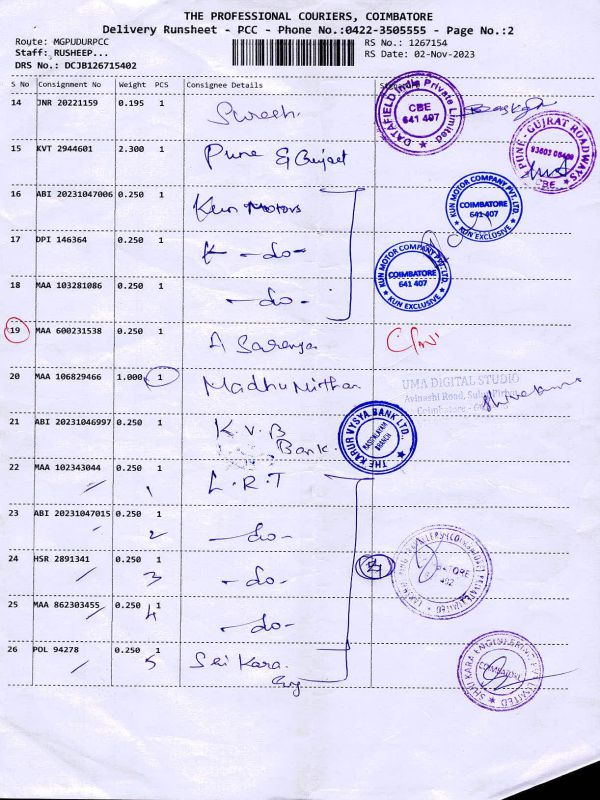 THE PROFESSIONAL COURIERS, COIMBATORE
Delivery Runsheet - PCC - Phone No.:0422-3505555 - Page No.:2
Route: MGPUDURPCC
Staff: RUSHEEP...
DRS No.: DCJB126715402
RS No.: 1267154
RS Date: 02-Nov-2023
S No Consignment No Weight PCS Consignee Details
14 JNR 20221159 0.195 1 Suresh
DATAFIELD India Private Limited CBE 641 407
15 KVT 2944601 2.300 1 Pune & Gujrat
PUNE - GUJRAT ROADWAYS CBE
16 ABI 20231047006 0.250 1 Kun Motors
KUN MOTOR COMPANY PVT. LTD. COIMBATORE 641 407 KUN EXCLUSIVE
17 DPI 146364 0.250 1 K - do -
KUN MOTOR COMPANY PVT. LTD. COIMBATORE 641 407 KUN EXCLUSIVE
18 MAA 103281086 0.250 1 - do -
19 MAA 600231538 0.250 1 A Saranya
20 MAA 106829466 1.000 1 Madhu Mitha
UMA DIGITAL STUDIO
Avinashi Road,
Coimbatore -
21 ABI 20231046997 0.250 1 K.V.B
Bank.
THE KARUR VYSYA BANK LTD., BRANCH
22 MAA 102343044 0.250 1 L.R.T
1
23 ABI 20231047015 0.250 1 - do -
2
24 HSR 2891341 0.250 1 - do -
3
25 MAA 862303455 0.250 1 - do -
4
26 POL 94278 0.250 1 Sri Kara.
5 Eng
SHRI KARA ENGINEERING COIMBATORE